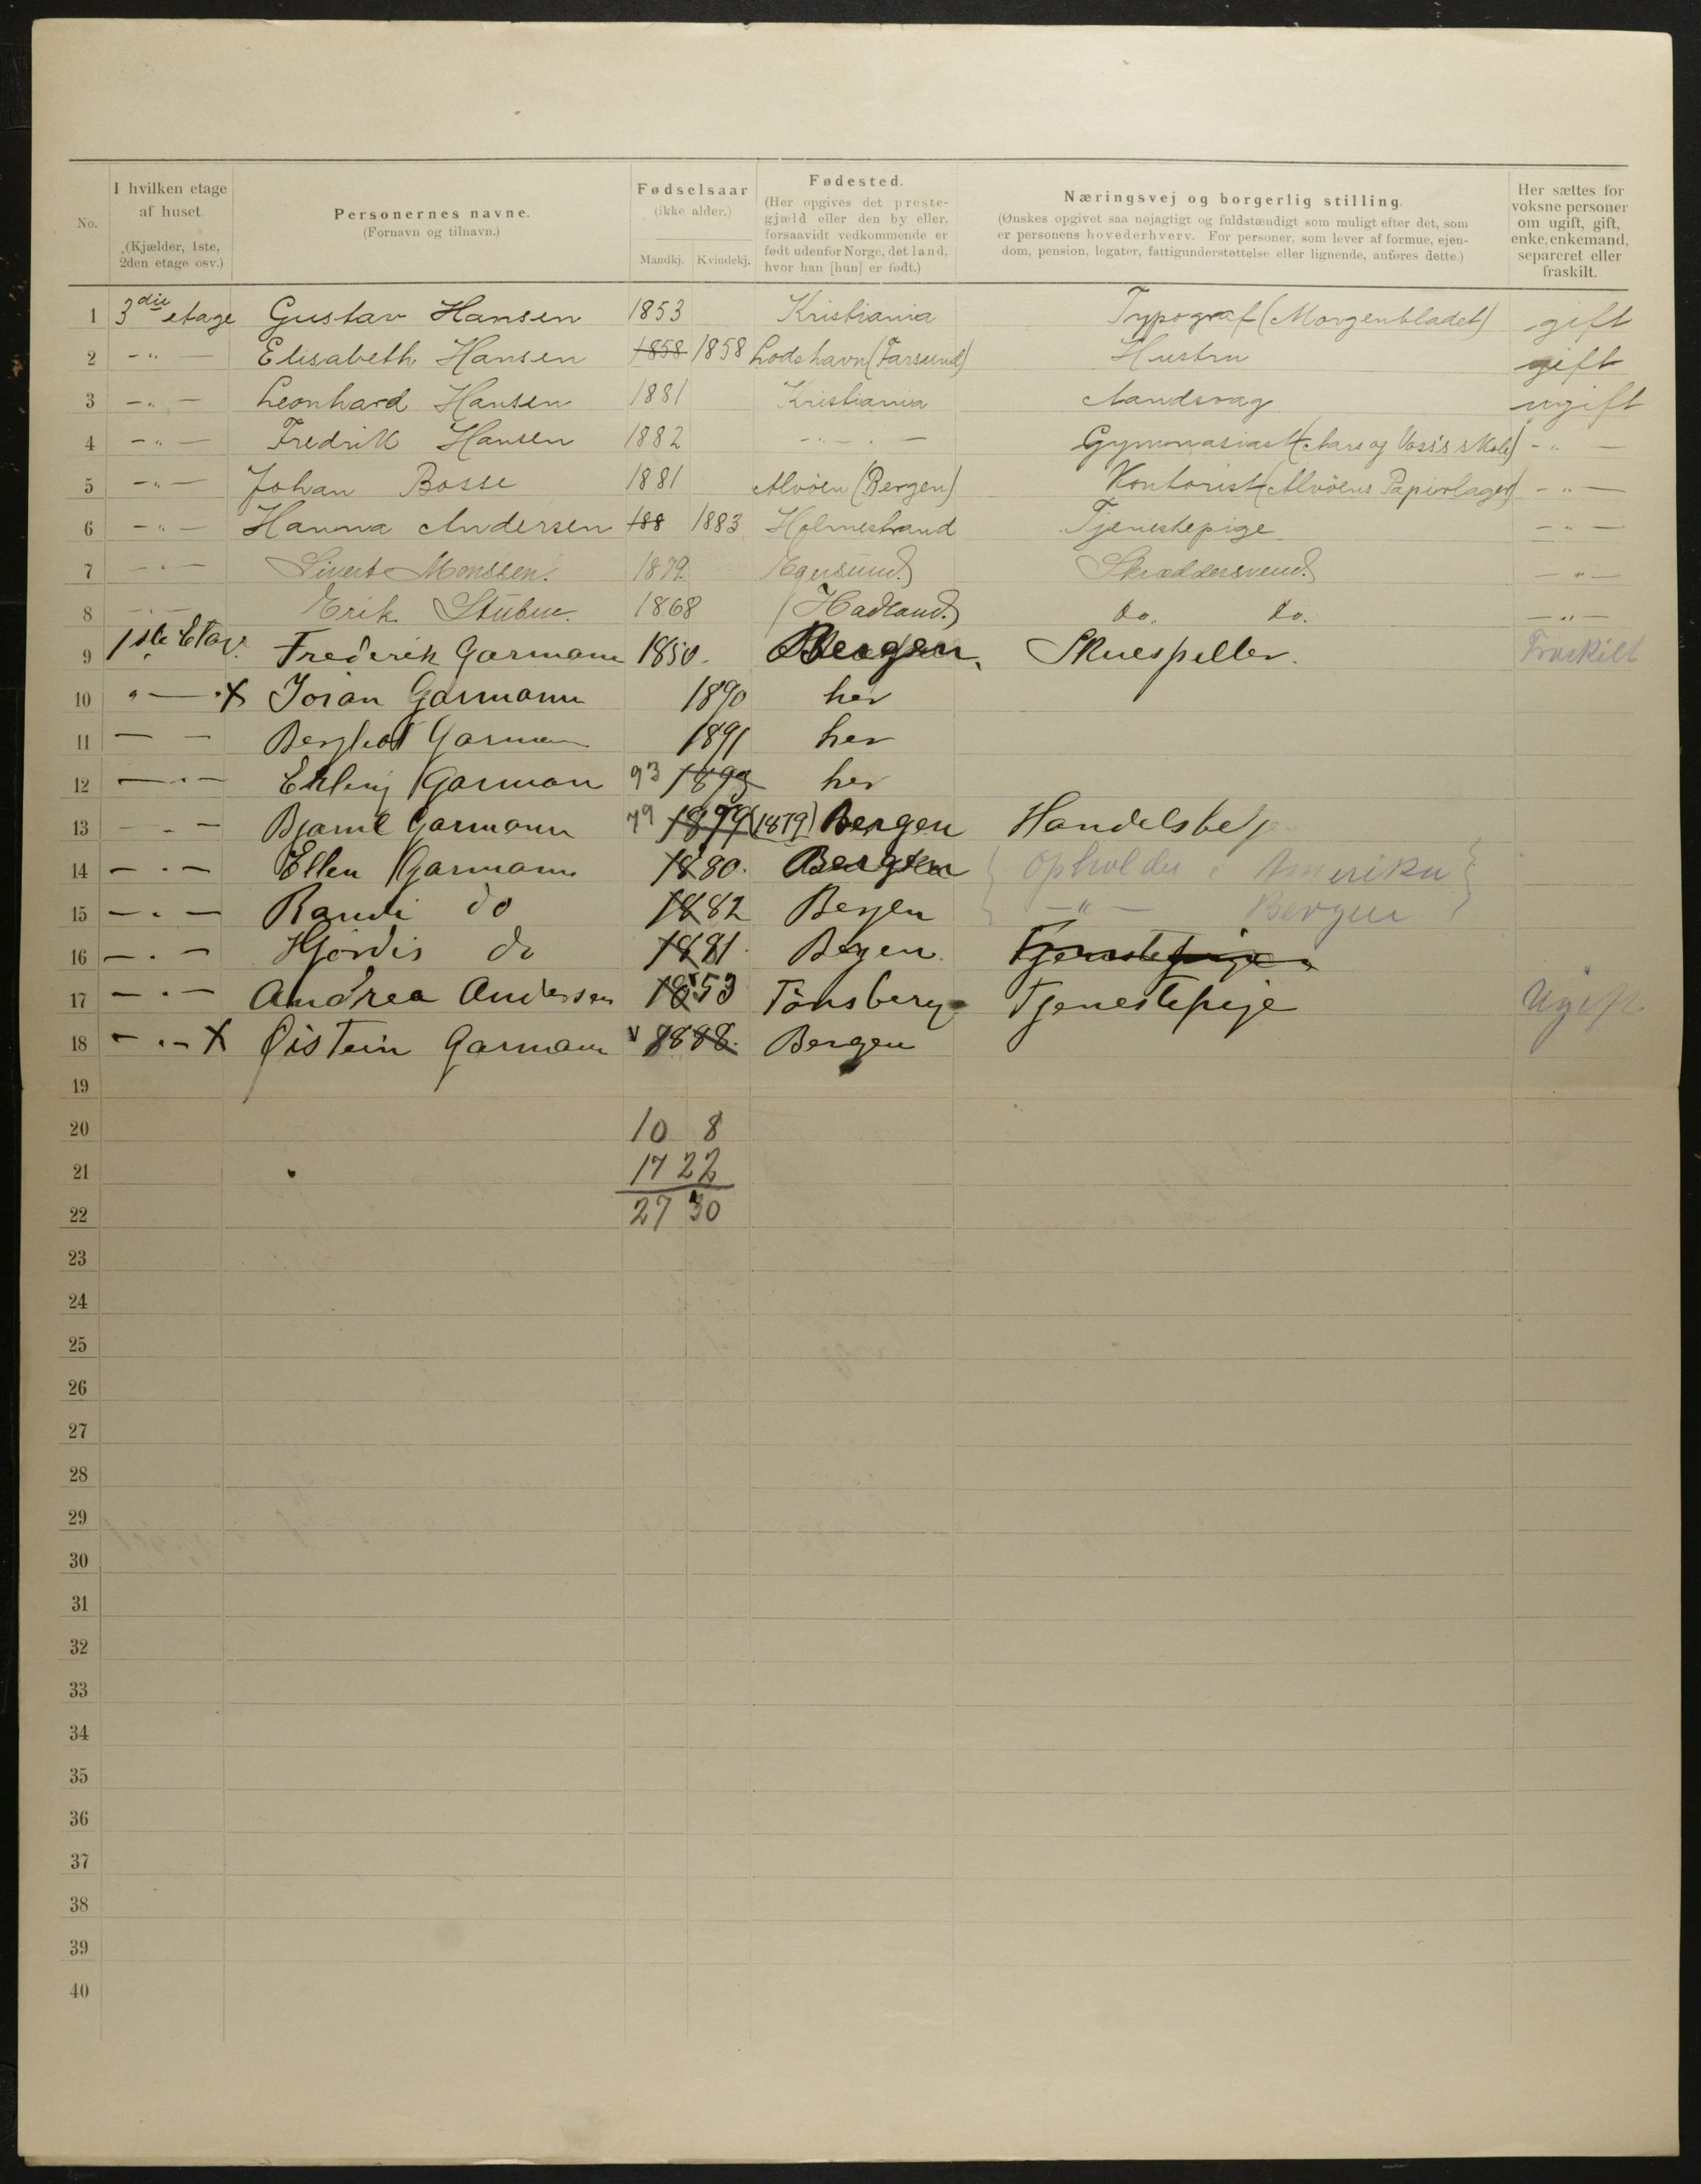 No.
I hvilken etage af huset.
(Kjælder, 1ste, 2den etage osv.)
Personernes navne.
(Fornavn og tilnavn.)
Fødselsaar
(ikke alder.)
Mandkj. Kvindekj.
Fødested.
(Her opgives det preste-
gjæld eller den by eller,
forsaavidt vedkommende er
født udenfor Norge, det land,
hvor han [hun] er født.)
Næringsvej og borgerlig stilling.
(Ønskes opgivet saa nøjagtigt og fuldstændigt som muligt efter det, som
er personens hovederhverv. For personer, som lever af formue, ejen-
dom, pension, legater, fattigunderstøttelse eller lignende, anføres dette.)
Her sættes for
voksne personer
om ugift, gift,
enke, enkemand,
separeret eller
fraskilt.
1 3die etage Gustav Hansen 1853 Kristiania Typograf (Morgenbladet) gift
2 -"- Elisabeth Hansen 1858 1858 Lodshavn (Farsund) Hustru gift
3 -"- Leonhard Hansen 1881 Kristiania Aandsvag ugift
4 -"- Fredrik Hansen 1882 -"- Gymnasiast (Aars og Voss's skole) -"-
5 -"- Johan Bosse 1881 Alvöen (Bergen) Kontorist (Alvöens Papirlager) -"-
6 -"- Hanna Andersen 188 1883 Holmestrand Tjenestepige -"-
7 -"- Sivert Monssen. 1879. Egersund.) Skræddersvend. -"-
8 -"- Erik Stubue. 1868 (Hadland.) do. do. -"-
9 1ste Etag. Frederik Garmann 1850. Bergen. Skuespiller. Fraskilt
10 "— X Joran Garmann 1890 her
11 — — Bergliot Garman 1891 her
12 —"— Erling Garman 93 1893 her
13 —"— Bjarne Garmann 79 1879 (1879) Bergen Handelsbetj
14 —"— Ellen Garmann 1880. Bergen { Opholder i Amerika }
15 —"— Randi do 1882 Bergen { —"— Bergen }
16 —"— Hjördis do 1881. Bergen. Tjenestepige
17 —"— Andrea Andersen 1853 Tönsberg Tjenestepige Ugift
18 —"— X Øistein Garmann 1888. Bergen
19
20 10 8
21 17 22
22 27 30
23
24
25
26
27
28
29
30
31
32
33
34
35
36
37
38
39
40